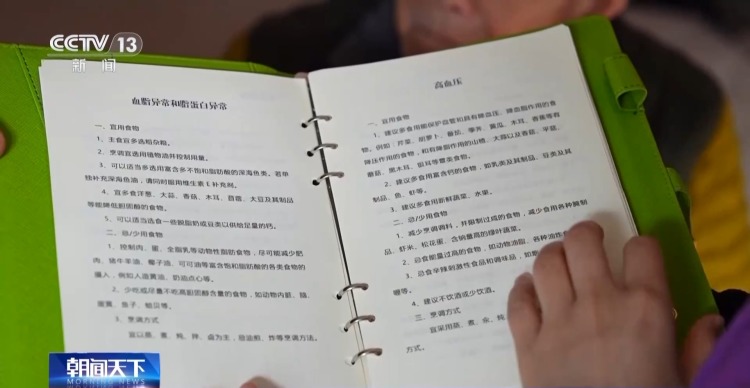 CCTV 13
新闻
血脂异常和脂蛋白异常
一、宜用食物
1、主食宜多选粗杂粮。
2、烹调宜选用植物油并控制用量。
3、可以适当多选用富含多不饱和脂肪酸的深海鱼类。若单
独补充深海鱼油，请同时服用维生素 E 补充剂。
4、宜多食洋葱、大蒜、香菇、木耳、苜蓿、大豆及其制品
等能降低胆固醇的食物。
5、可以适当选食一些脱脂奶或豆类以供给足量的钙。
二、忌/少用食物
1、控制肉、蛋、全脂乳等动物性脂肪食物，尽可能减少肥
肉、猪牛羊油、椰子油、可可油等富含饱和脂肪酸的各类食物的
摄入，例如人造黄油、奶油点心等。
2、少吃或尽量不吃高胆固醇含量的食物，如动物内脏、脑、
蛋黄、鱼子、蛤贝等。
3、烹调方式
宜以蒸、煮、炖、拌、卤为主，忌油煎、炸等烹调方法。
高血压
一、宜用食物
1、建议多食用能保护血管和具有降血压、降血脂作用的食
物，例如：芹菜、胡萝卜、番茄、荸荠、黄瓜、木耳、香蕉等有
降压作用的食物，和有降脂作用的山楂、大蒜以及香菇、平菇、
蘑菇、黑木耳、银耳等蕈类食物。
2、建议多食用富含钙的食物，如乳类及其制品、豆类及其
制品、鱼、虾等。
3、建议多食用新鲜蔬菜、水果。
二、忌/少用食物
1、减少烹调调料，并限制过咸的食物，减少食用各种腌制
品、虾米、松花蛋、含钠量高的绿叶蔬菜。
2、忌食能量过高的食物，如动物油脂、各种油炸
3、忌食辛辣刺激性食品和调味品，如
咖啡等。
4、建议不饮酒或少饮酒。
三、烹调方式
宜采用蒸、煮、汆、炖
方式。
朝闻天下
MORNING NEWS